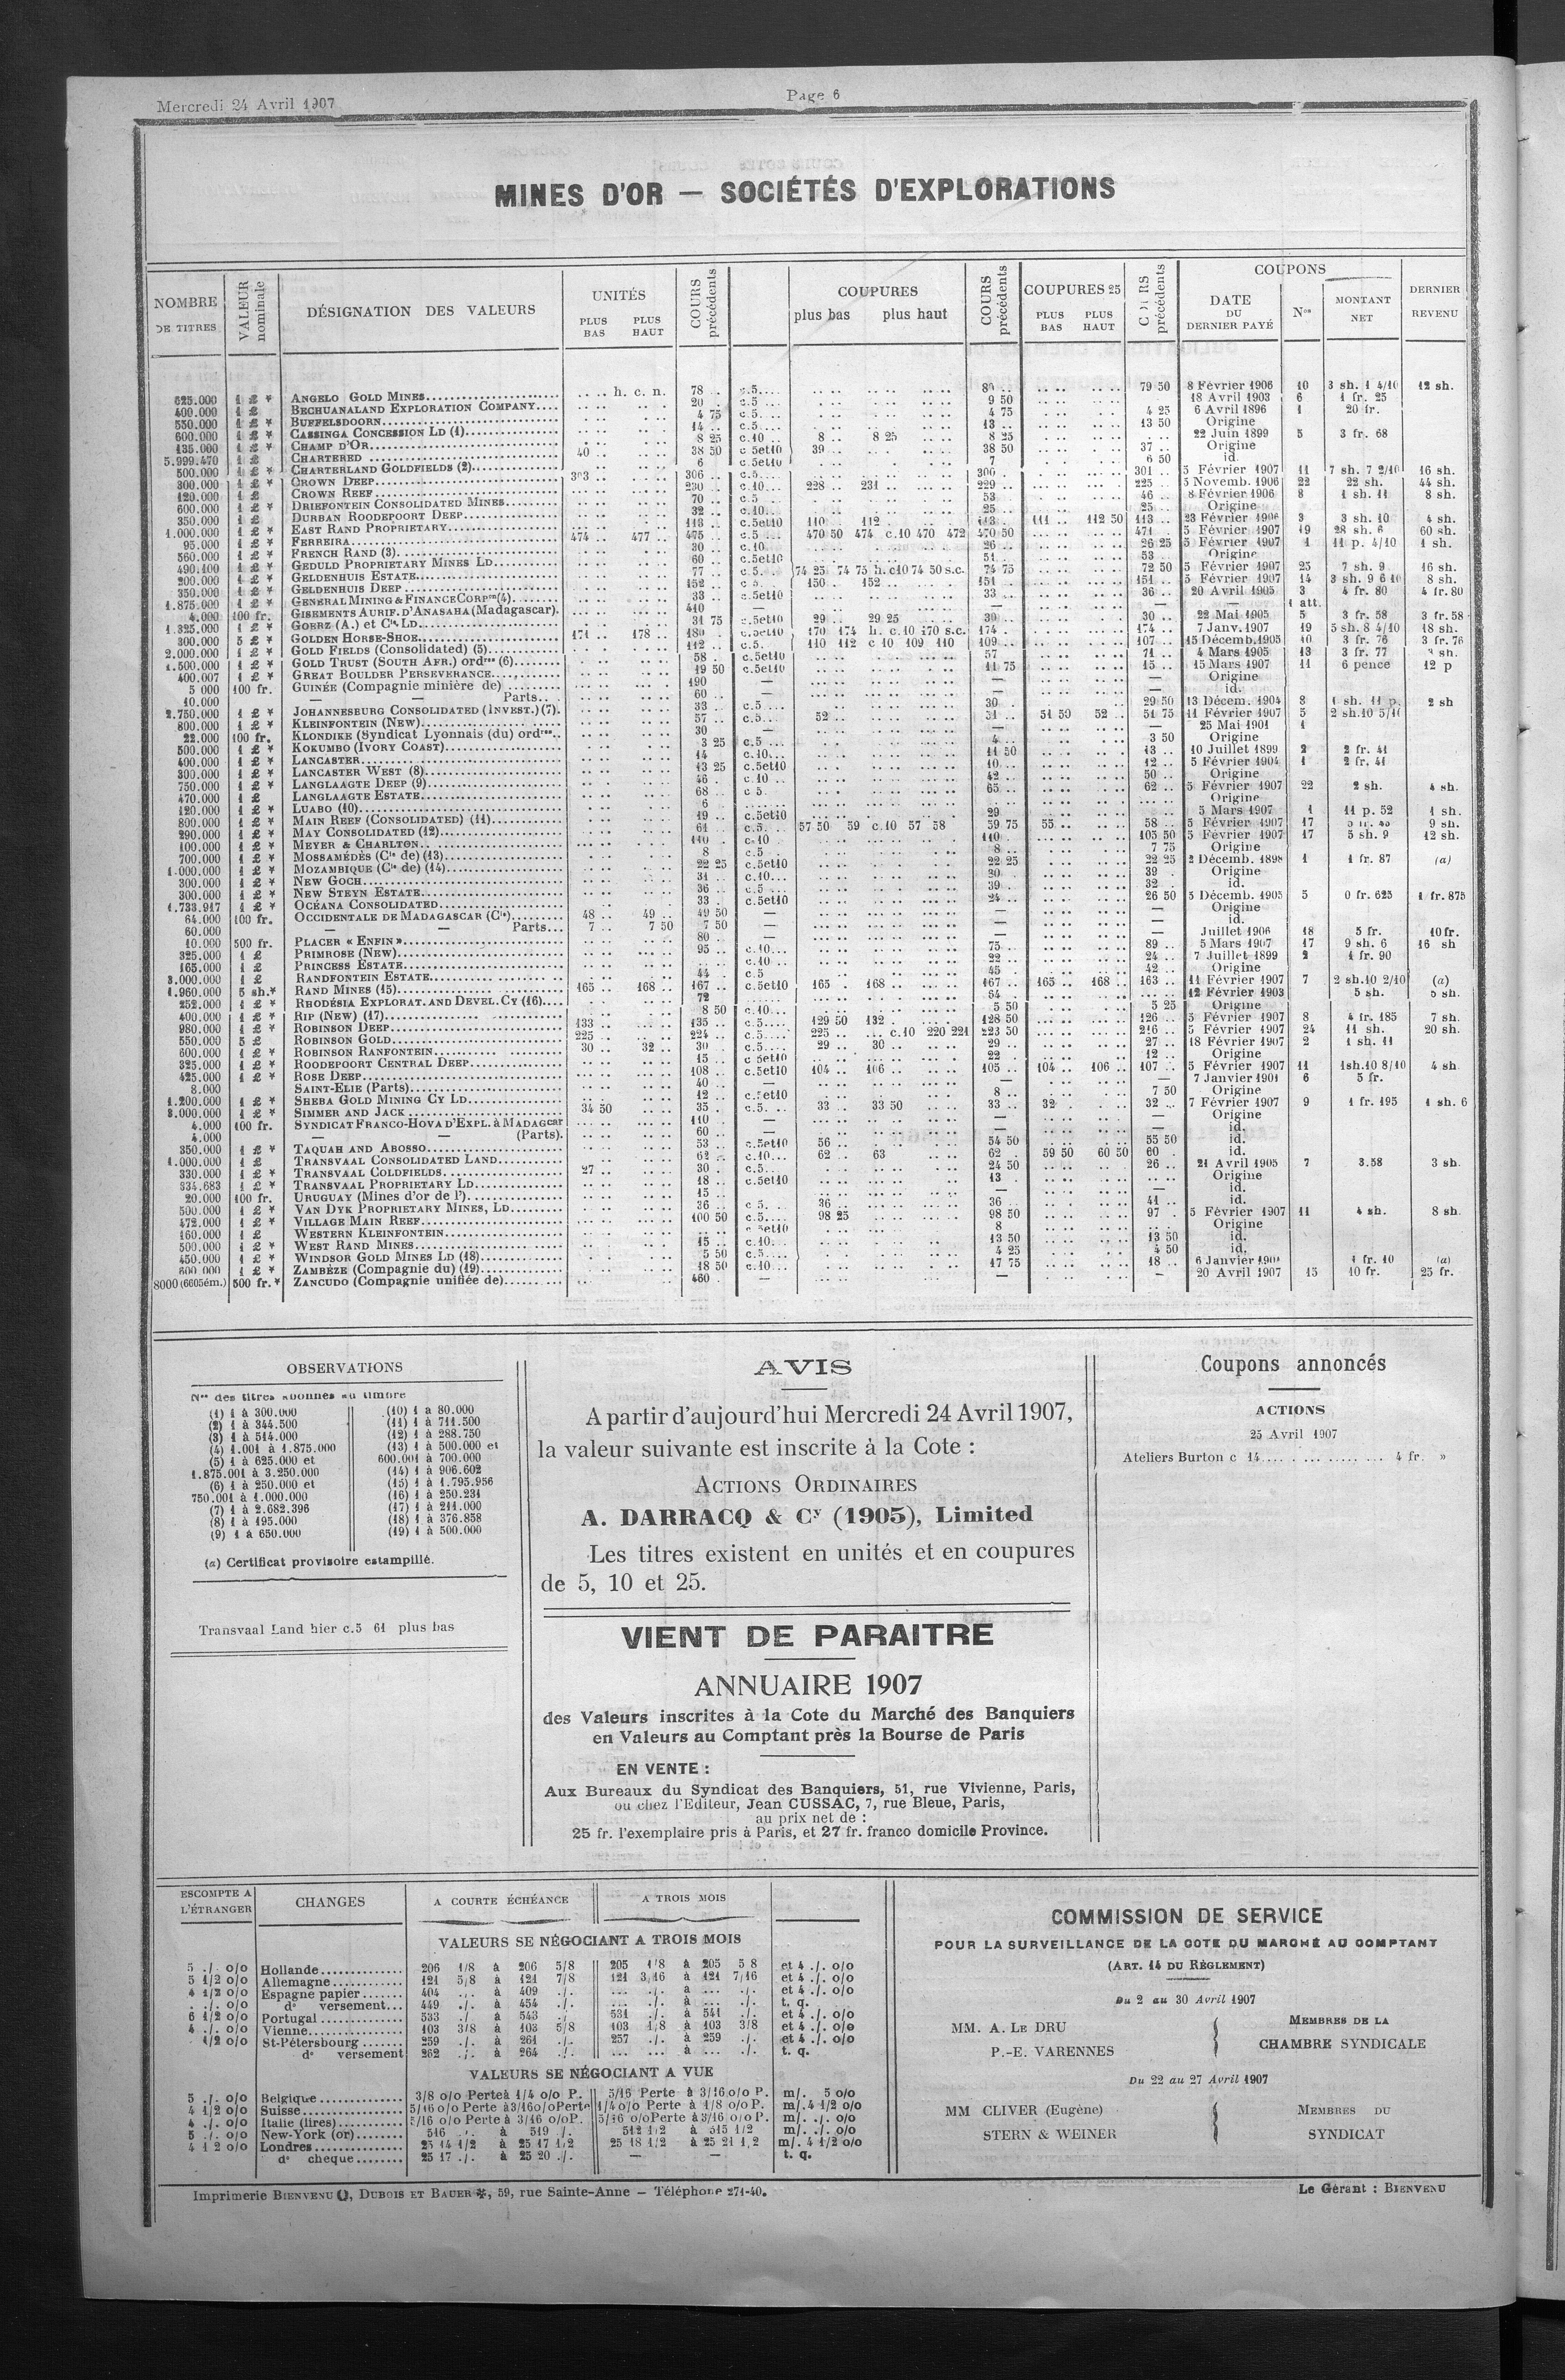 Mercredi 24 Avril 1907
Page 6
MINES D'OR — SOCIÉTÉS D'EXPLORATIONS
NOMBRE DE TITRES
VALEUR nominale
DÉSIGNATION DES VALEURS
UNITÉS
PLUS BAS PLUS HAUT
COURS précédents
COUPURES
plus bas plus haut
COURS précédents
COUPURES 25
PLUS BAS PLUS HAUT
COURS précédents
COUPONS
DATE DU DERNIER PAYÉ
Nos
MONTANT NET
DERNIER REVENU
625.000 1 £ * ANGELO GOLD MINES h. c. n. 78 .. c.5 79 50 8 Février 1906 10 3 sh. 1 4/10 12 sh.
400.000 1 £ * BECHUANALAND EXPLORATION COMPANY 20 .. c.5 9 50 18 Avril 1903 6 1 fr. 25
550.000 1 £ * BUFFELSDOORN 4 75 c.5 4 75 4 25 6 Avril 1896 1 20 fr.
600.000 1 £ * CASSINGA CONCESSION LD (1) 14 .. c.5 13 .. 13 50 Origine
135.000 1 £ * CHAMP D'OR 8 25 c.10 8 .. 8 25 8 25 22 Juin 1899 5 3 fr. 68
5.999.470 1 £ * CHARTERED 40 .. 38 50 c.5et10 39 .. 38 50 37 .. Origine
500.000 1 £ * CHARTERLAND GOLDFIELDS (2) 6 c.5et10 7 6 50 id.
300.000 1 £ * CROWN DEEP 303 .. 306 .. c.5 300 .. 301 .. 5 Février 1907 11 7 sh. 7 2/10 16 sh.
120.000 1 £ CROWN REEF 230 .. c.10 228 .. 231 .. 229 .. 225 .. 5 Novemb. 1906 22 22 sh. 44 sh.
600.000 1 £ * DRIEFONTEIN CONSOLIDATED MINES 70 .. c.5 53 46 .. 8 Février 1906 8 1 sh. 11 8 sh.
350.000 1 £ DURBAN ROODEPOORT DEEP 32 .. c.10 25 .. 25 .. Origine
1.000.000 1 £ * EAST RAND PROPRIETARY 113 .. c.5et10 110 .. 112 .. 113 .. 111 .. 112 50 113 .. 23 Février 1906 3 3 sh. 10 4 sh.
95.000 1 £ * FERREIRA 474 .. 477 .. 475 .. c.5 470 50 474 c.10 470 472 470 50 471 . 5 Février 1907 19 28 sh. 6 60 sh.
560.000 1 £ * FRENCH RAND (3) 30 .. c.10 26 .. 26 25 5 Février 1907 1 11 p. 4/10 1 sh.
490.100 1 £ * GEDULD PROPRIETARY MINES LD 60 .. c.5et10 51 .. 53 .. Origine
200.000 1 £ * GELDENHUIS ESTATE 77 .. c.5 74 25 74 75 h. c10 74 50 s.c. 74 75 72 50 5 Février 1907 25 7 sh. 9 16 sh.
350.000 1 £ * GELDENHUIS DEEP 152 .. c.5 150 . 152 .. 151 .. 151 .. 5 Février 1907 14 3 sh. 9 6 10 8 sh.
1.875.000 1 £ * GENERAL MINING & FINANCE CORPon (4) 33 .. c.5et10 33 .. 36 .. 20 Avril 1905 3 4 fr. 80 4 fr. 80
4.000 100 fr. GISEMENTS AURIF. D'ANASAHA (Madagascar). 410 — — — — 1 att.
1.325.000 1 £ * GOERZ (A.) et Cie, LD 31 75 c.5et10 29 .. 29 25 30 .. 30 .. 22 Mai 1905 5 3 fr. 58 3 fr. 58
300.000 5 £ * GOLDEN HORSE-SHOE 171 .. 178 .. 180 .. c.5et10 170 174 h. c.10 170 s.c. 174 . 174 .. 7 Janv. 1907 19 5 sh. 8 4/10 18 sh.
2.000.000 1 £ * GOLD FIELDS (Consolidated) (5) 112 .. c.5. 110 112 c 10 109 110 109 .. 107 .. 15 Décemb. 1905 10 3 fr. 76 3 fr. 76
1.500.000 1 £ * GOLD TRUST (SOUTH AFR.) ordres (6) 58 . c.5et10 57 71 .. 4 Mars 1905 13 3 fr. 77
400.007 1 £ * GREAT BOULDER PERSEVERANCE 19 50 c.5et10 11 75 15 .. 15 Mars 1907 11 6 pence 12 p
5 000 100 fr. GUINÉE (Compagnie minière de) 190 — — — Origine
10.000 — Parts 60 .. — — — id.
2.750.000 1 £ * JOHANNESBURG CONSOLIDATED (INVEST.) (7). 33 .. c.5 30 . 29 50 13 Décem. 1904 8 1 sh. 11 p. 2 sh
800.000 1 £ * KLEINFONTEIN (NEW) 57 .. c.5 52 .. 51 .. 51 50 52 .. 51 75 11 Février 1907 5 2 sh. 10 5/10
22.000 100 fr. KLONDIKE (Syndicat Lyonnais (du) ordres 30 — — — 25 Mai 1901 1
500.000 1 £ * KOKUMBO (IVORY COAST) 3 25 c.5 4 .. 3 50 Origine
400.000 1 £ * LANCASTER 14 c.10 11 50 13 .. 10 Juillet 1899 2 2 fr. 41
300.000 1 £ * LANCASTER WEST (8) 13 25 c.5et10 10 .. 12 .. 5 Février 1904 1 2 fr. 41
750.000 1 £ * LANGLAAGTE DEEP (9) 46 . c.10 42 .. 50 .. Origine
470.000 1 £ LANGLAAGTE ESTATE 68 .. c 5. 65 .. 62 .. 5 Février 1907 22 2 sh. 4 sh.
120.000 1 £ * LUABO (10) 6 Origine
800.000 1 £ * MAIN REEF (CONSOLIDATED) (11) 19 .. c.5et10 29 5 Mars 1907 1 11 p. 52 1 sh.
290.000 1 £ * MAY CONSOLIDATED (12) 61 .. c.5. 57 50 59 c.10 57 58 59 75 55 .. 58 .. 5 Février 1907 17 9 sh.
100.000 1 £ * MEYER & CHARLTON 110 .. c.10 110 .. 105 50 5 Février 1907 17 5 sh. 9 12 sh.
700.000 1 £ * MOSSAMÉDÈS (Cie de) (13) 8 c.5 8 .. 7 75 Origine
1.000.000 1 £ * MOZAMBIQUE (Cie de) (14) 22 25 c.5et10 22 25 22 25 2 Décemb. 1898 1 1 fr. 87 (a)
300.000 1 £ * NEW GOCH 31 .. c.10 30 . 39 . Origine
300.000 1 £ * NEW STEYN ESTATE 36 .. c.5 39 .. 32 . id.
1.733.917 1 £ * OCÉANA CONSOLIDATED 33 . c.5et10 24 .. 26 50 5 Décemb. 1905 5 0 fr. 625 1 fr. 875
64.000 100 fr. OCCIDENTALE DE MADAGASCAR (Cie) 48 .. 49 .. 49 50 — — — Origine
60.000 — — Parts 7 .. 7 50 7 50 — — — id.
10.000 500 fr. PLACER « ENFIN » 80 . — — — Juillet 1906 18 5 fr. 10 fr.
325.000 1 £ PRIMROSE (NEW) 95 .. c.10 75 .. 89 .. 5 Mars 1907 17 9 sh. 6 16 sh
165.000 1 £ PRINCESS ESTATE c.10 22 .. 24 .. 7 Juillet 1899 2 1 fr. 90
3.000.000 1 £ RANDFONTEIN ESTATE 44 .. c.5 45 .. 42 .. Origine
1.960.000 5 sh.* RAND MINES (15) 165 .. 168 .. 167 .. c.5et10 165 . 168 .. 167 .. 165 .. 168 .. 163 .. 11 Février 1907 7 2 sh. 10 2/10 (a)
252.000 1 £ * RHODÉSIA EXPLORAT. AND DEVEL. CY (16) 72 54 .. 12 Février 1903 5 sh. 5 sh.
400.000 1 £ * RIP (NEW) (17) 8 50 c.10 5 50 5 25 Origine
980.000 1 £ * ROBINSON DEEP 133 .. 135 .. c.5 129 50 132 . 128 50 126 .. 5 Février 1907 8 4 fr. 185 7 sh.
550.000 5 £ ROBINSON GOLD 225 .. 224 .. c.5 225 .. c.10 220 221 223 50 216 .. 5 Février 1907 24 11 sh. 20 sh.
600.000 1 £ * ROBINSON RANFONTEIN 30 .. 32 .. 30 . c.5 29 .. 30 .. 29 .. 27 .. 18 Février 1907 2 1 sh. 11
325.000 1 £ * ROODEPOORT CENTRAL DEEP 15 .. c 5et10 22 . 12 .. Origine
425.000 1 £ * ROSE DEEP 108 .. c.5et10 104 .. 106 .. 105 .. 104 .. 106 .. 107 .. 5 Février 1907 11 1sh.10 8/10 4 sh
8.000 SAINT-ELIE (Parts) 40 .. — — — 7 Janvier 1901 6 5 fr.
1.200.000 1 £ * SHEBA GOLD MINING CY LD 12 .. c.5et10 8 .. 7 50 Origine
3.000.000 1 £ * SIMMER AND JACK 34 50 35 . c.5. 33 .. 33 50 33 .. 32 . 32 .. 7 Février 1907 9 1 fr. 195 1 sh. 6
4.000 100 fr. SYNDICAT FRANCO-HOVA D'EXPL. à MADAGcar 110 .. — — — Origine
4.000 — — (Parts). 60 .. — — — id.
350.000 1 £ * TAQUAH AND ABOSSO 53 .. c.5et10 56 .. 54 50 55 50 id.
1.000.000 1 £ TRANSVAAL CONSOLIDATED LAND 62 .. c.10 62 .. 63 62 . 59 50 60 50 60 . id.
330.000 1 £ * TRANSVAAL COLDFIELDS 27 .. 30 . c.5 24 50 26 .. 21 Avril 1905 7 3.58 3 sh.
334.683 1 £ * TRANSVAAL PROPRIETARY LD 18 .. c.5et10 13 . Origine
20.000 100 fr. URUGUAY (Mines d'or de l') 15 .. — — id.
500.000 1 £ * VAN DYK PROPRIETARY MINES, LD 36 .. c 5. 36 .. 36 .. 41 .. id.
472.000 1 £ * VILLAGE MAIN REEF 100 50 c.5 98 25 98 50 97 . 5 Février 1907 11 4 sh. 8 sh.
160.000 1 £ WESTERN KLEINFONTEIN 5et10 8 Origine
500.000 1 £ * WEST RAND MINES 15 .. c.10 13 50 13 50 id.
450.000 1 £ * WINDSOR GOLD MINES LD (18) 5 50 c.5 4 25 4 50 id.
600 000 1 £ * ZAMBÈZE (Compagnie du) (19) 18 50 c.10 17 75 18 .. 6 Janvier 1 fr. 10 (a)
8000 (6605ém.) 500 fr.* ZANCUDO (Compagnie unifiée de) 460 . — — — 20 Avril 1907 15 10 fr. 25 fr.
OBSERVATIONS
Nos des titres abonnés au timbre
(1) 1 à 300.000
(2) 1 à 344.500
(3) 1 à 514.000
(4) 1.001 à 1.875.000
(5) 1 à 625.000 et
1.875.001 à 3.250.000
(6) 1 à 250.000 et
750.001 à 1.000.000
(7) 1 à 2.682.396
(8) 1 à 195.000
(9) 1 à 650.000
(10) 1 à 80.000
(11) 1 à 711.500
(12) 1 à 288.750
(13) 1 à 500.000 et
600.001 à 700.000
(14) 1 à 906.602
(15) 1 à 1.795.956
(16) 1 à 250.231
(17) 1 à 211.000
(18) 1 à 376.858
(19) 1 à 500.000
(a) Certificat provisoire estampillé.
Transvaal Land hier c.5 61 plus bas
AVIS
A partir d'aujourd'hui Mercredi 24 Avril 1907,
la valeur suivante est inscrite à la Cote :
ACTIONS ORDINAIRES
A. DARRACQ & Cy (1905), Limited
Les titres existent en unités et en coupures
de 5, 10 et 25.
VIENT DE PARAITRE
ANNUAIRE 1907
des Valeurs inscrites à la Cote du Marché des Banquiers
en Valeurs au Comptant près la Bourse de Paris
EN VENTE :
Aux Bureaux du Syndicat des Banquiers, 51, rue Vivienne, Paris,
ou chez l'Editeur, Jean CUSSAC, 7, rue Bleue, Paris,
au prix net de :
25 fr. l'exemplaire pris à Paris, et 27 fr. franco domicile Province.
Coupons annoncés
ACTIONS
25 Avril 1907
Ateliers Burton c 14 4 fr. »
ESCOMPTE A L'ÉTRANGER
CHANGES
A COURTE ÉCHÉANCE
A TROIS MOIS
VALEURS SE NÉGOCIANT A TROIS MOIS
5 ./. o/o Hollande 206 1/8 à 206 5/8 205 1/8 à 205 5 8 et 4 ./. o/o
5 1/2 o/o Allemagne 121 5/8 à 121 7/8 121 3/16 à 121 7/16 et 4 ./. o/o
4 1/2 o/o Espagne papier 404 ./. à 409 ./. ... ./. à ... ./. et 4 ./. o/o
. ./. o/o do versement 449 ./. à 454 ./. ... ./. à ... ./. t. q.
6 1/2 o/o Portugal 533 ./. à 543 ./. 531 ./. à 541 ./. et 4 ./. o/o
4 ./. o/o Vienne 103 3/8 à 103 5/8 103 1/8 à 103 3/8 et 4 ./. o/o
1/2 o/o St-Pétersbourg 259 ./. à 261 ./. 257 ./. à 259 ./. et 4 ./. o/o
do versement 262 ./. à 264 ./. ... ... à ... ./. t. q.
VALEURS SE NÉGOCIANT A VUE
5 ./. o/o Belgique 3/8 o/o Perte à 1/4 o/o P. 5/16 Perte à 3/16 o/o P. m/. 5 o/o
4 1/2 o/o Suisse 5/16 o/o Perte à 3/16 o/o Perte 1/4 o/o Perte à 1/8 o/o P. m/. 4 1/2 o/o
4 ./. o/o Italie (lires) 5/16 o/o Perte à 3/16 o/o P. 5/16 o/o Perte à 3/16 o/o P. m/. ./. o/o
5 ./. o/o New-York (or) 516 ./. à 519 ./. 512 1/2 à 515 1/2 m/. ./. o/o
4 1 2 o/o Londres 25 14 1/2 à 25 17 1/2 25 18 1/2 à 25 21 1/2 m/. 4 1/2 o/o
do cheque 25 17 ./. à 25 20 ./. — — t. q.
COMMISSION DE SERVICE
POUR LA SURVEILLANCE DE LA COTE DU MARCHÉ AU COMPTANT
(ART. 14 DU RÈGLEMENT)
Du 2 au 30 Avril 1907
MM. A. LE DRU
P.-E. VARENNES
MEMBRES DE LA
CHAMBRE SYNDICALE
Du 22 au 27 Avril 1907
MM CLIVER (Eugène)
STERN & WEINER
MEMBRES DU
SYNDICAT
Imprimerie BIENVENU, DUBOIS ET BAUER, 59, rue Sainte-Anne — Téléphone 271-40.
Le Gérant : BIENVENU